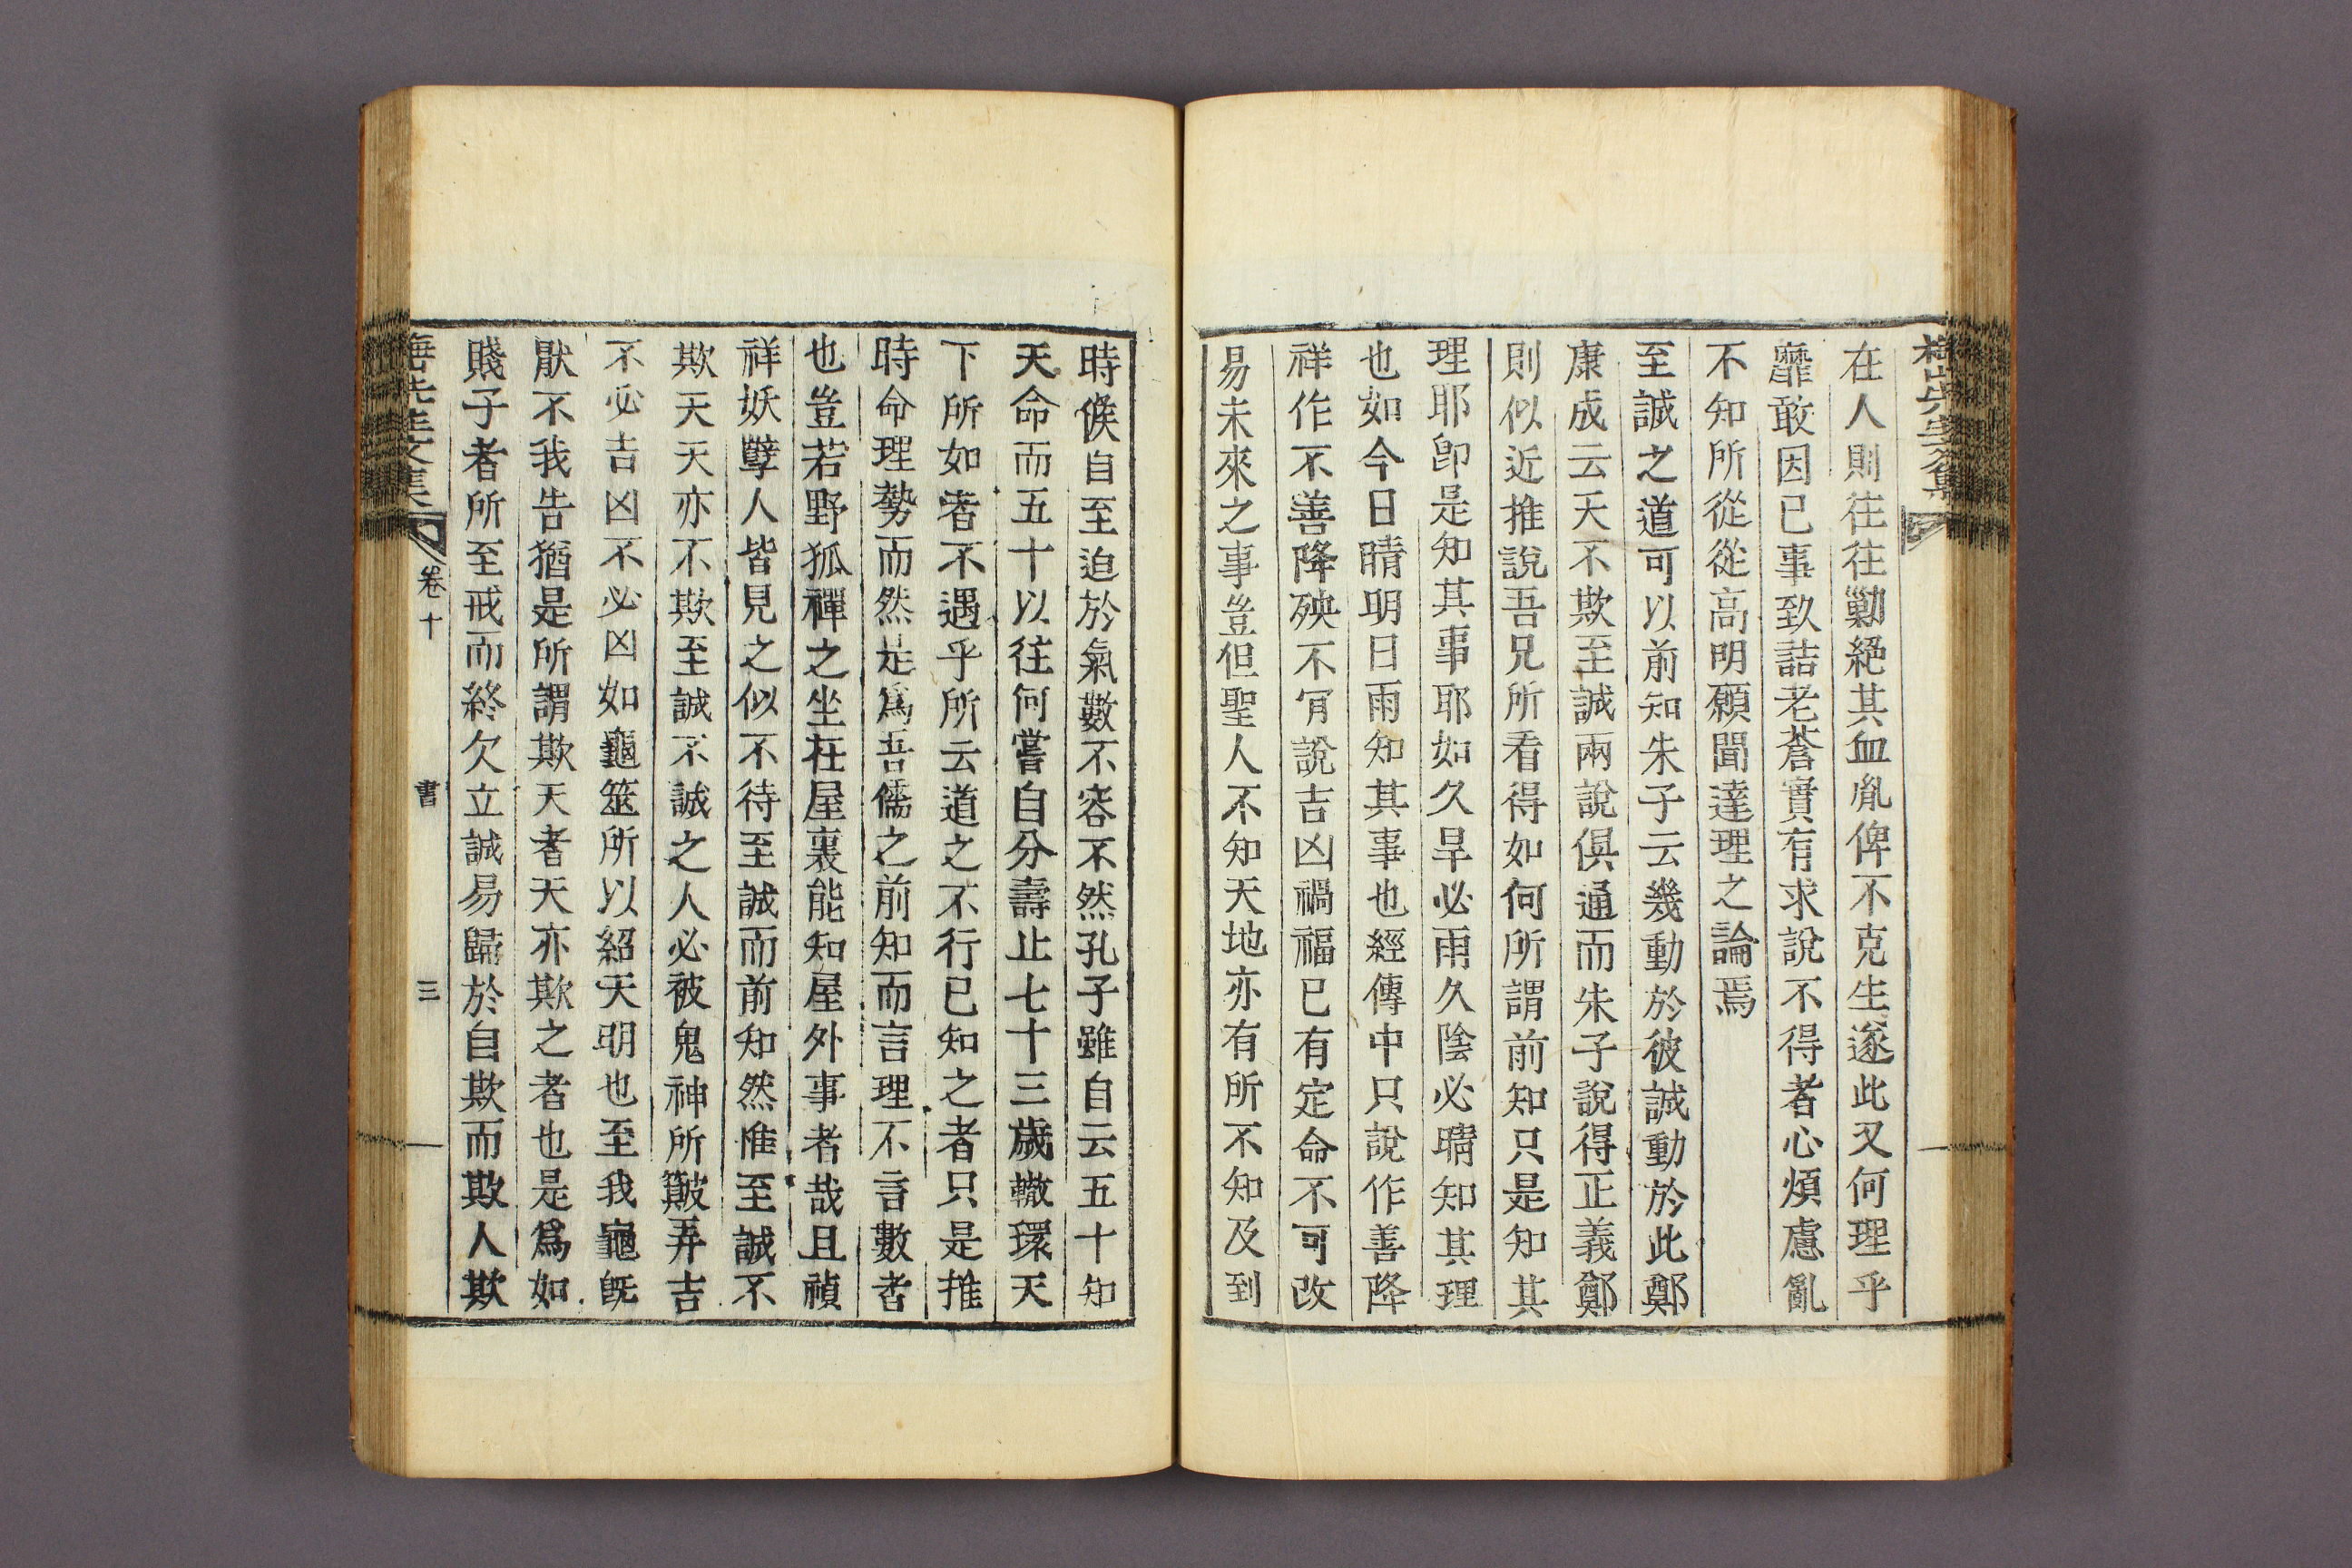 在人則往往勦絕其血胤俾不克生遂此又何理乎
靡敢因已事致詰老蒼實有求說不得者心煩慮亂
不知所從從高明願聞達理之論焉
至誠之道可以前知朱子云幾動於彼誠動於此鄭
康成云天不欺至誠兩說俱通而朱子說得正義鄭
則似近推說吾兄所看得如何所謂前知只是知其
理耶卽是知其事耶如久旱必雨久陰必晴知其理
也如今日晴明日雨知其事也經傳中只說作善降
祥作不善降殃不肯說吉凶禍福已有定命不可改
易未來之事豈但聖人不知天地亦有所不知及到
時候自至迫於氣數不容不然孔子雖自云五十知
天命而五十以往何嘗自分壽止七十三歲轍環天
下所如者不遇乎所云道之不行已知之者只是推
時命理勢而然是爲吾儒之前知而言理不言數者
也豈若野狐禪之坐在屋裏能知屋外事者哉且禎
祥妖孼人皆見之似不待至誠而前知然惟至誠不
欺天天亦不欺至誠不誠之人必被鬼神所簸弄吉
不必吉凶不必凶如龜筮所以紹天明也至我龜旣
猒不我告猶是所謂欺天者天亦欺之者也是爲如
賤子者所至戒而終欠立誠易歸於自欺而欺人欺
卷十
書
三